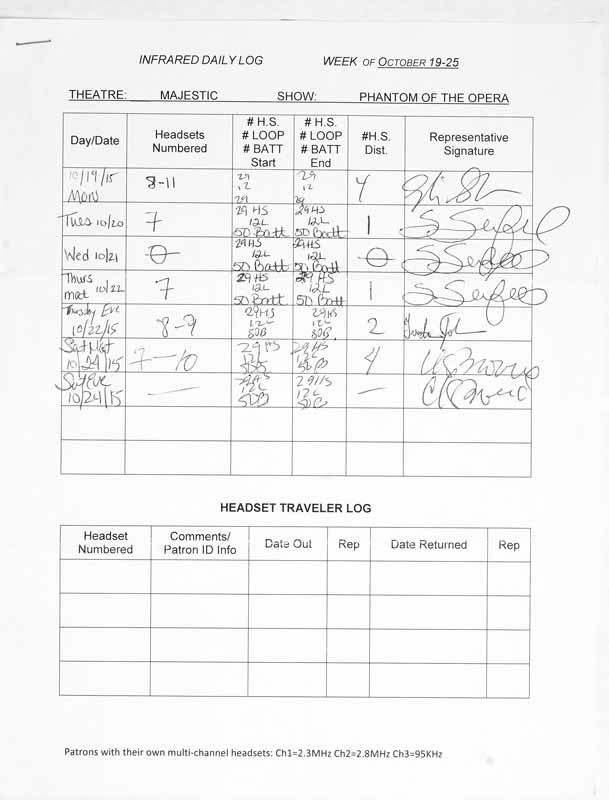 INFRARED DAILY LOG WEEK OF OCTOBER 19-25
THEATRE: MAJESTIC SHOW: PHANTOM OF THE OPERA
Day/Date Headsets Numbered # H.S. # LOOP # BATT Start # H.S. # LOOP # BATT End #H.S. Dist. Representative Signature
10/19/15 Mon 8-11 29 12 29 12 4
Tues 10/20 7 29 HS 12L 50 Batt 29 HS 12L 50 Batt 1
Wed 10/21 0 29HS 12L 50 Batt 29HS 12L 50 Batt 0
Thurs mat 10/22 7 29HS 12L 50 Batt 29HS 12L 50 Batt 1
Thursday Eve 10/22/15 8-9 29HS 12L 50B 29HS 12L 50B 2
Sat Mat 10/24/15 7-10 29HS 12L 50B 29HS 12L 50B 4
Sat Eve 10/24/15 — 29HS 12L 50B 29HS 12L 50B —
HEADSET TRAVELER LOG
Headset Numbered Comments/ Patron ID Info Date Out Rep Date Returned Rep
Patrons with their own multi-channel headsets: Ch1=2.3MHz Ch2=2.8MHz Ch3=95KHz